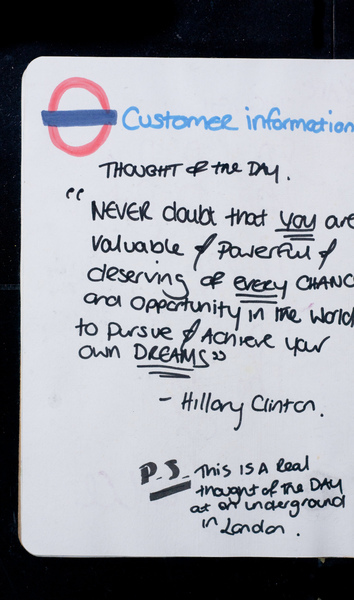 Customer information
THOUGHT of the DAY.
"NEVER doubt that you are
valuable & powerful &
deserving of every CHANC
and opportunity in the World
to pursue & Achieve your
own DREAMS"
- Hillary Clinton.
P.S. This IS A real
thought of the DAY
at an underground
in London.